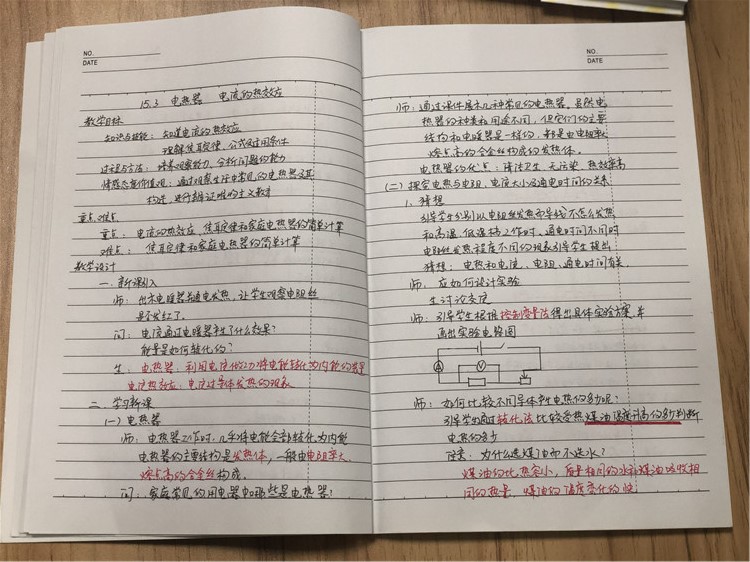 NO.
DATE
15.3 电热器 电流的热效应
教学目标
知识与技能：知道电流的热效应
理解焦耳定律、公式及适用条件
过程与方法：培养观察能力、分析问题的能力
情感态度价值观：通过观察生活中常见的电热器及其
构造，进行辩证唯物主义教育
重点、难点
重点：电流的热效应、焦耳定律和家庭电热器的简单计算
难点：焦耳定律和家庭电热器的简单计算
教学设计
一、新课引入
师：出示电暖器并通电发热，让学生观察电阻丝
是否发红了。
问：电流通过电暖器产生了什么效果？
能量是如何转化的？
生：电热器：利用电流做功将电能转化为内能的装置
电流热效应：电流过导体发热的现象
二、学习新课
（一）电热器
师：电热器工作时，几乎将电能全部转化为内能
电热器的主要结构是发热体，一般由电阻率大、
熔点高的合金丝构成。
问：家庭常见的用电器中哪些是电热器？
NO.
DATE
师：通过课件展示几种常见的电热器，虽然电
热器的种类和用途不同，但它们的主要
结构和电暖器是一样的，都是由电阻率大
熔点高的合金丝构成的发热体。
电热器的优点：清洁卫生、无污染、热效率高
（二）探究电热与电阻、电流大小及通电时间的关系
1、猜想
引导学生分别从电阻丝发热而导线不怎么发热
和高温、低温档工作时、通电时间不同时
电阻丝发热程度不同的现象引导学生提出
猜想：电热和电流、电阻、通电时间有关
师：应如何设计实验
生讨论交流
师：引导学生根据控制变量法得出具体实验方案，并
画出实验电路图
A
V
师：如何比较不同导体产生电热的多少呢？
引导学生通过转化法比较受热煤油温度升高的多少判断
电热的多少
注意：为什么选煤油而不选水？
煤油的比热容小，质量相同的水和煤油吸收相
同的热量，煤油的温度变化的快